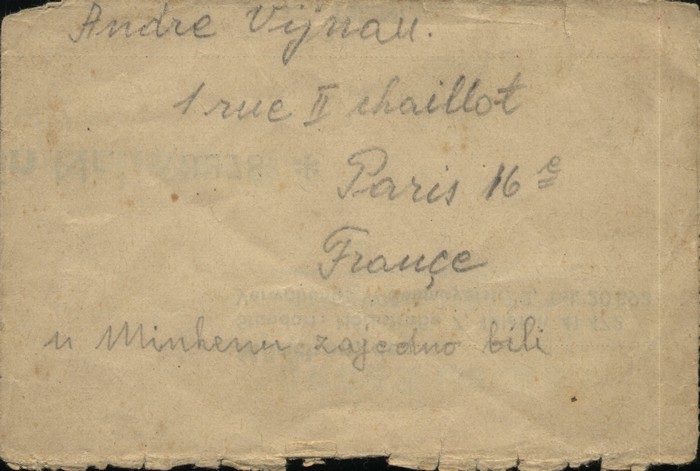 Andre Vijnau.
1 rue II chaillot
Paris 16e
Françe
u Minhenu zajedno bili